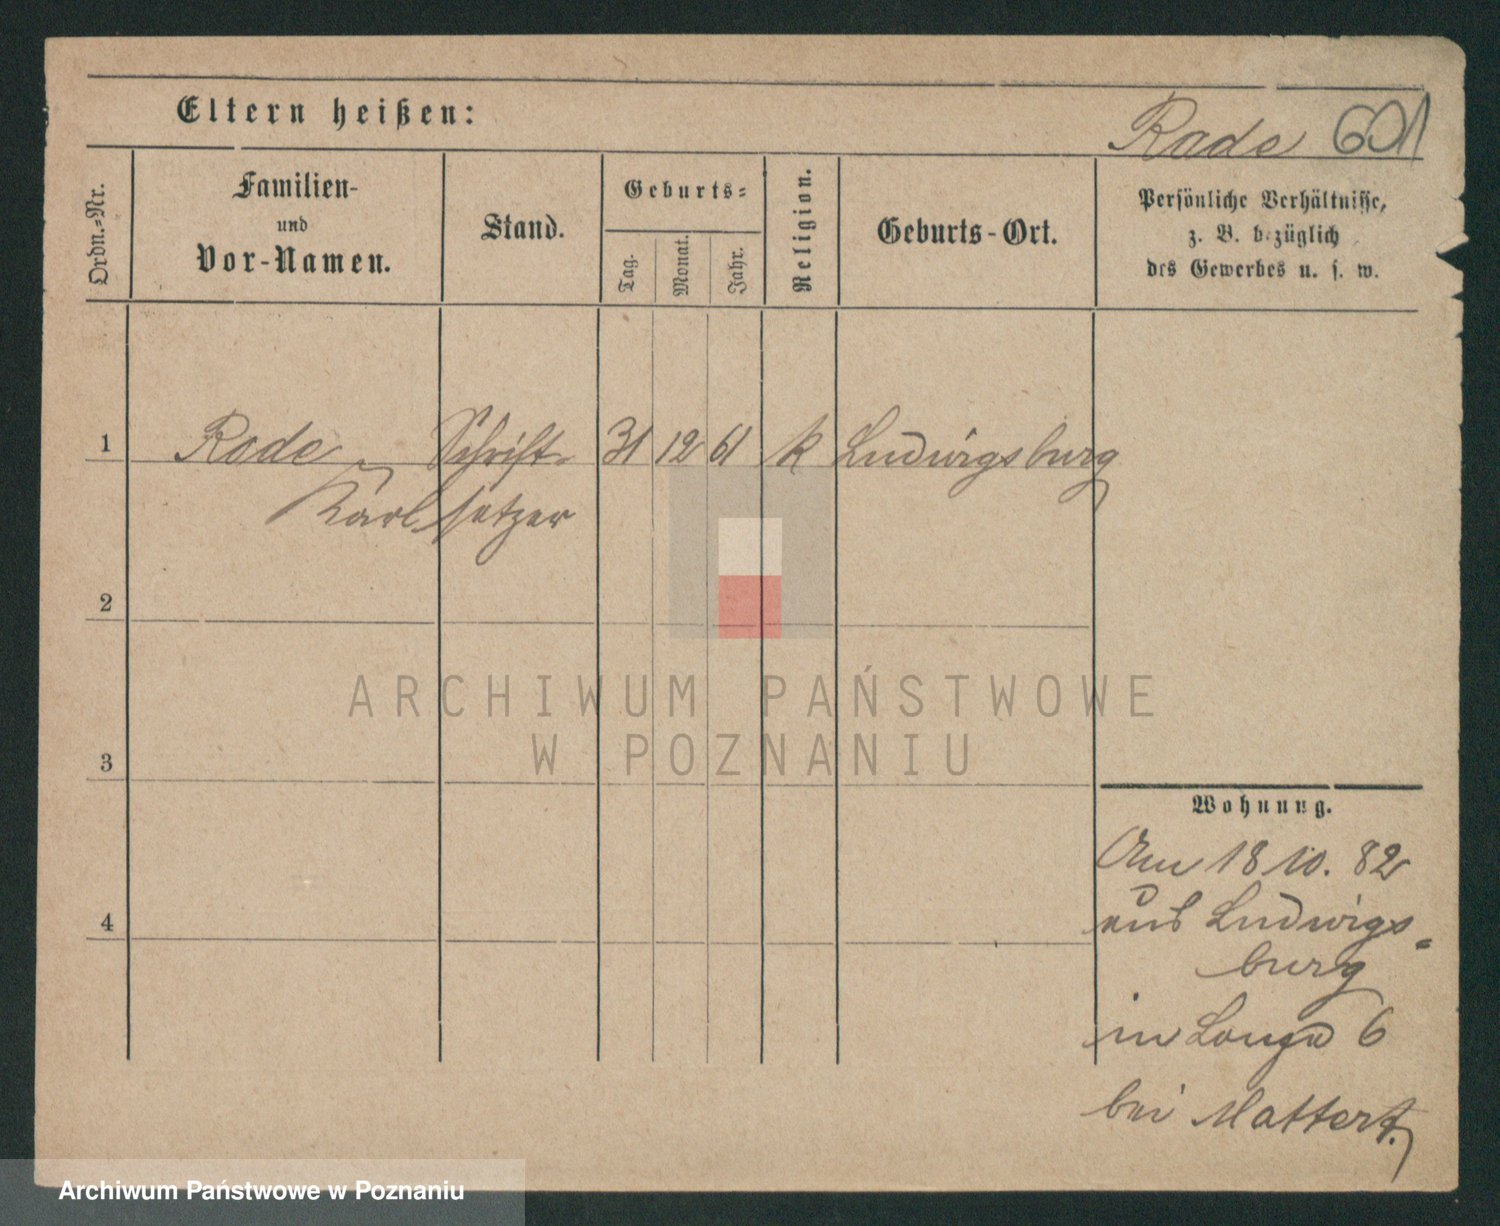 Eltern heißen:
Rade 601
Ordn.-Nr.
Familien-
und
Vor-Namen.
Stand.
Geburts-
Tag.
Monat.
Jahr.
Religion.
Geburts-Ort.
Persönliche Verhältnisse,
z. B. bezüglich
des Gewerbes u. s. w.
1 Rade Schrift- 31 12 61 k Ludwigsburg
Karl setzer
2
3
4
ARCHIWUM PAŃSTWOWE
W POZNANIU
Wohnung.
Am 18 10. 82
aus Ludwigs-
burg
in 6
bei Mattert.
Archiwum Państwowe w Poznaniu